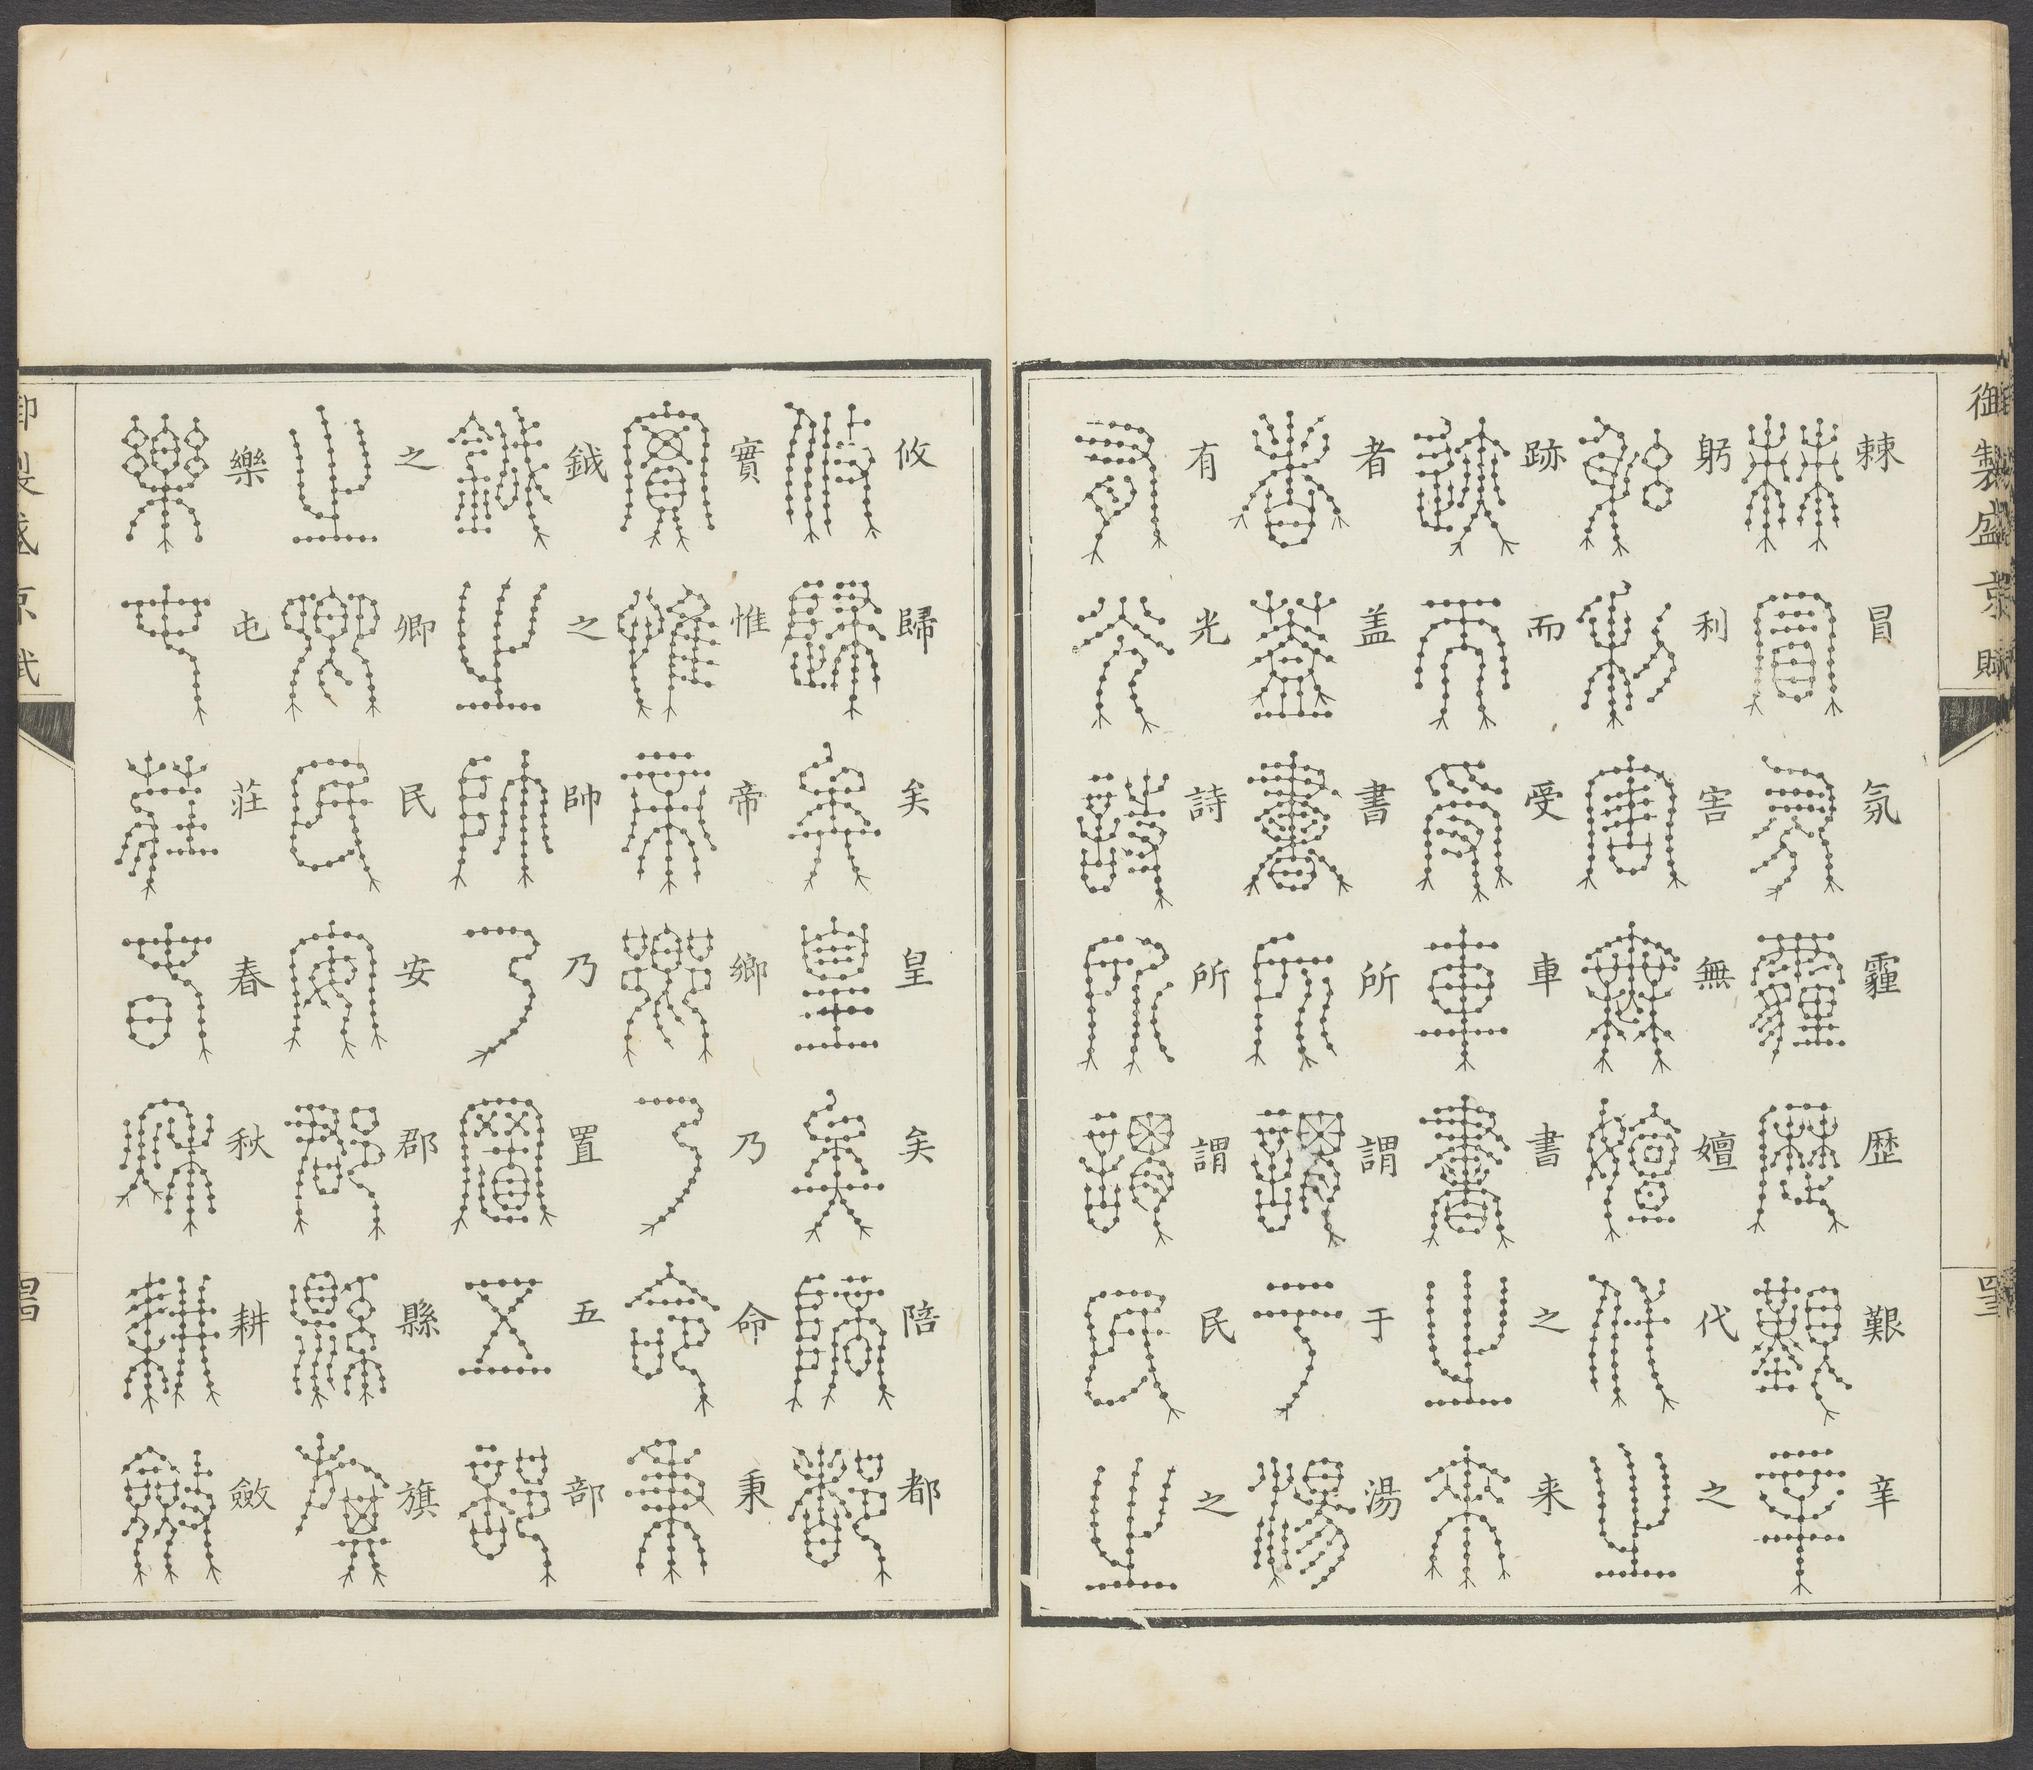 御製盛京賦
棘冒氛霾歷艱辛
躬利害無嬗代之
跡而受車書之来
者盖書所謂于湯
有光詩所謂民之
攸歸矣皇矣陪都
實惟帝鄉乃命秉
鉞之帥乃置五部
之卿民安郡縣旗
樂屯莊春秋耕斂